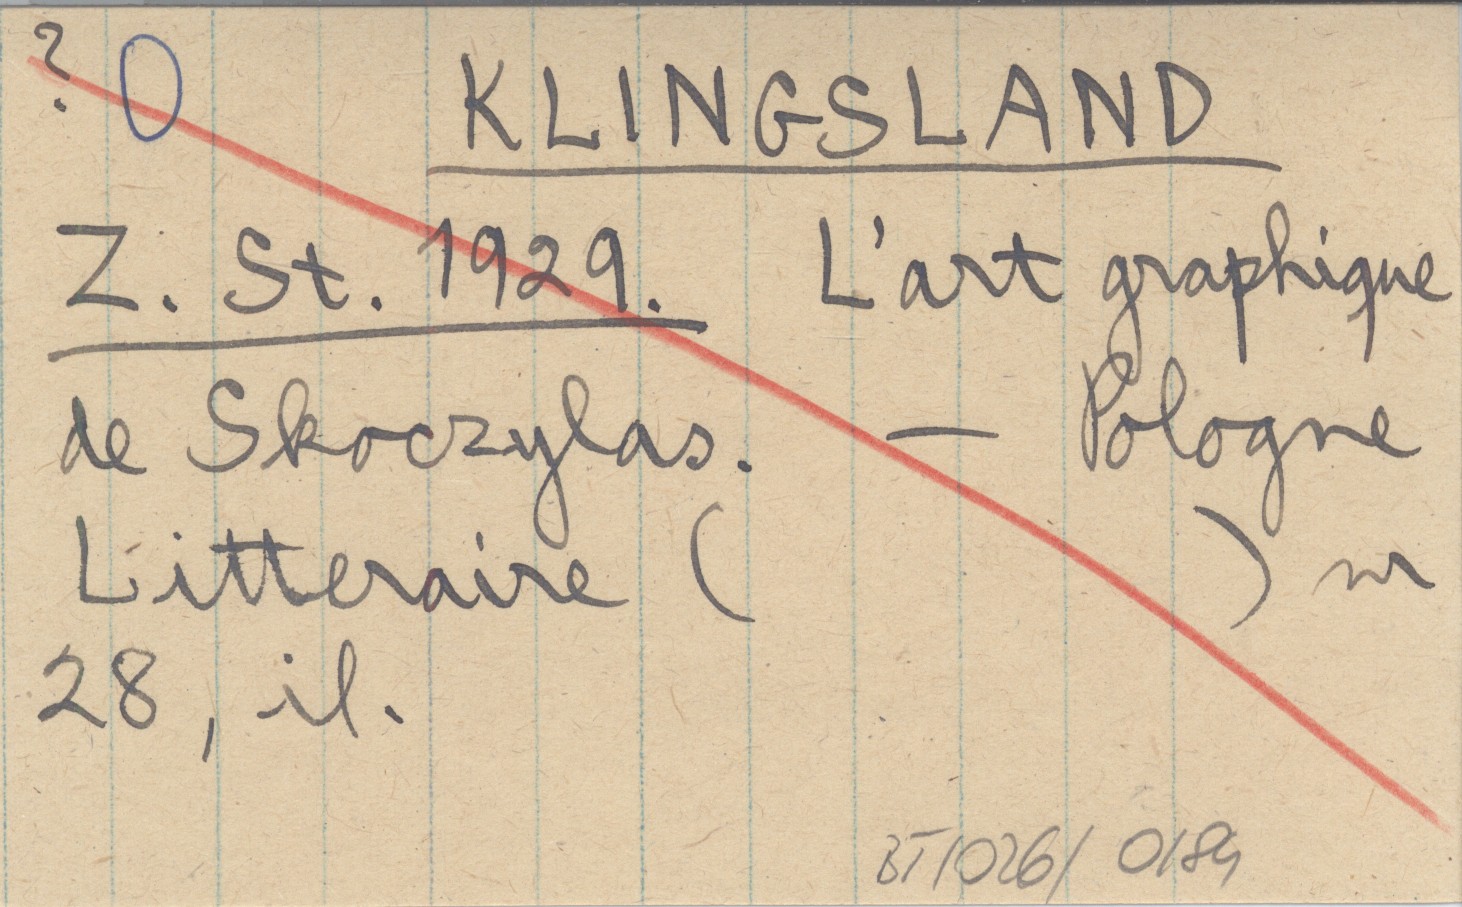 ? 0 KLINGSLAND
Z. St. 1929. L'art graphique
de Skoczylas. — Pologne
Litteraire ( ) nr
28, il.
BT/026/ 0184